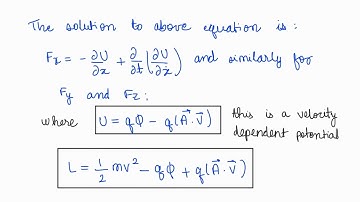 The solution to above equation is :
Fx = -∂U/∂x + ∂/∂t(∂U/∂ẋ) and similarly for
Fy and Fz :
where U = qΦ - q(A⃗.V⃗) this is a velocity dependent potential
L = 1/2 mv² - qΦ + q(A⃗.V⃗)